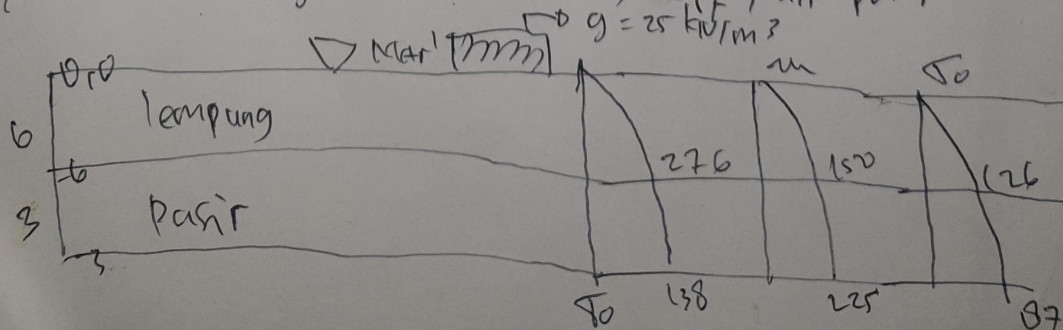 g = 25 kN/m³
0,0
lempung
6
-6
pasir
3
-3
276
150
126
138
225
87